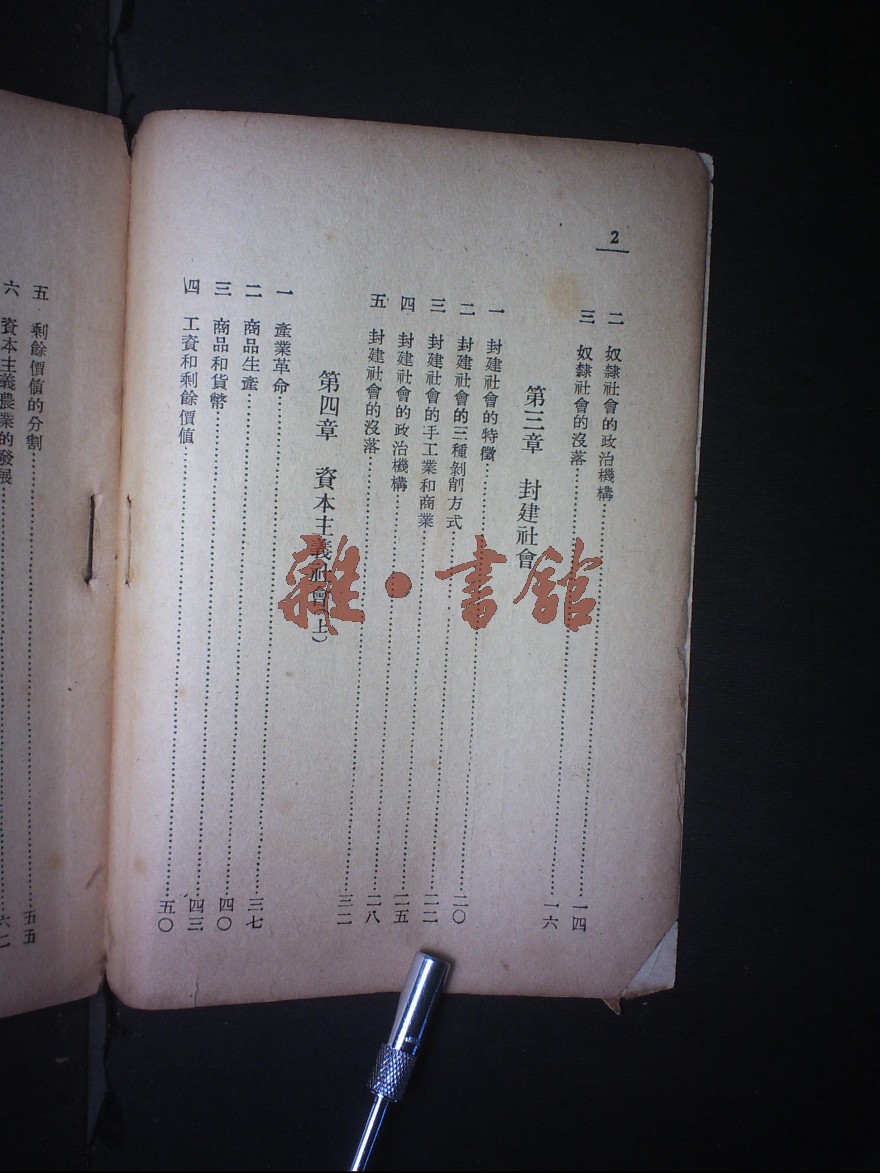 2
二 奴隸社會的政治機構……一四
三 奴隸社會的沒落……一六
第三章 封建社會
一 封建社會的特徵……二〇
二 封建社會的三種剝削方式……二二
三 封建社會的手工業和商業……二五
四 封建社會的政治機構……二八
五 封建社會的沒落……三二
第四章 資本主義社會(上)
一 產業革命……三七
二 商品生產……四〇
三 商品和貨幣……四三
四 工資和剩餘價值……五〇
五 剩餘價值的分割……五五
六 資本主義農業的發展……
雜·書館